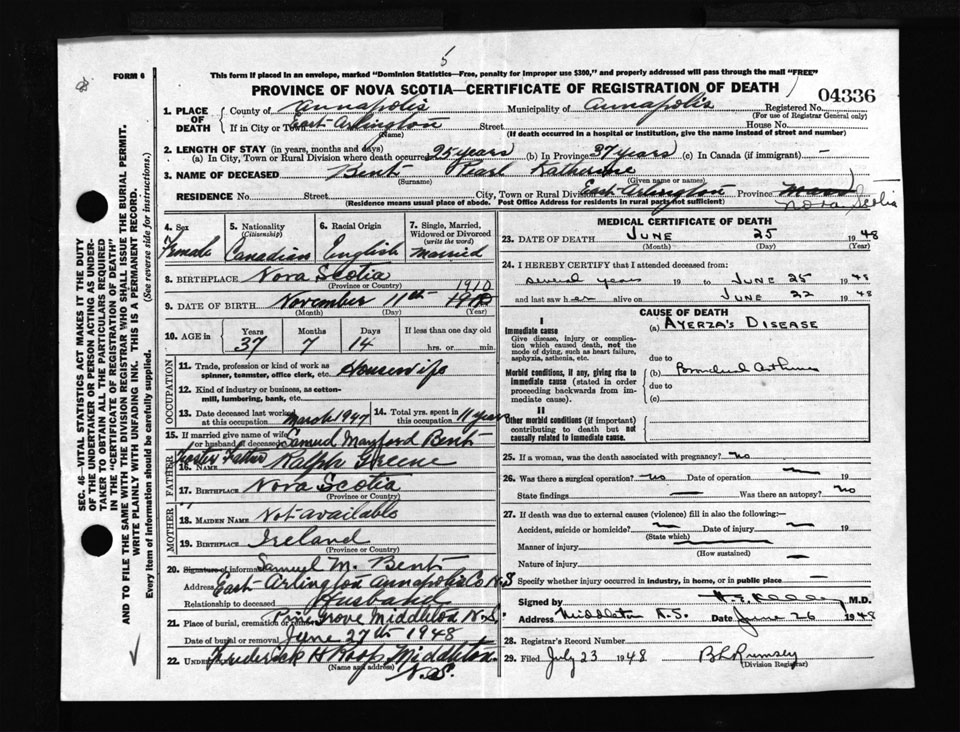 5
FORM 6
This form if placed in an envelope, marked "Dominion Statistics—Free, penalty for improper use $300," and properly addressed will pass through the mail "FREE"
PROVINCE OF NOVA SCOTIA—CERTIFICATE OF REGISTRATION OF DEATH
04336
1. PLACE OF DEATH
County of Annapolis Municipality of Annapolis Registered No.
(For use of Registrar General only)
If in City or Town East Arlington Street House No.
(Name) (If death occurred in a hospital or institution, give the name instead of street and number)
2. LENGTH OF STAY (in years, months and days)
(a) In City, Town or Rural Division where death occurred 25 years (b) In Province 37 years (c) In Canada (if immigrant) —
3. NAME OF DECEASED Bent Pearl Katherine
(Surname) (Given name or names)
RESIDENCE No. Street City, Town or Rural Division East Arlington Province
Nova Scotia
(Residence means usual place of abode. Post Office Address for residents in rural parts not sufficient)
4. Sex Female
5. Nationality (Citizenship) Canadian
6. Racial Origin English
7. Single, Married, Widowed or Divorced (write the word) Married
8. BIRTHPLACE Nova Scotia
(Province or Country)
1910
9. DATE OF BIRTH November 11th
(Month) (Day) (Year)
10. AGE in Years Months Days If less than one day old
37 7 14 hrs. or min.
OCCUPATION
11. Trade, profession or kind of work as spinner, teamster, office clerk, etc. Housewife
12. Kind of industry or business, as cotton-mill, lumbering, bank, etc.
13. Date deceased last worked at this occupation March 1947
14. Total yrs. spent in this occupation 11 years
15. If married give name of wife or husband of deceased Samuel Maxford Bent
FATHER
Foster Father
16. NAME Ralph Greene
17. BIRTHPLACE Nova Scotia
(Province or Country)
MOTHER
18. MAIDEN NAME Not available
19. BIRTHPLACE Ireland
(Province or Country)
20. Signature of informant Samuel M. Bent
Address East Arlington Annapolis Co N.S
Relationship to deceased Husband
21. Place of burial, cremation or removal Pine Grove Middleton N.S.
Date of burial or removal June 27th 1948
22. Undertaker Frederick H Roop, Middleton.
(Name and address) N.S.
MEDICAL CERTIFICATE OF DEATH
23. DATE OF DEATH JUNE 25 1948
(Month) (Day) (Year)
24. I HEREBY CERTIFY that I attended deceased from:
several years 19 to JUNE 25 1948
and last saw her alive on JUNE 22 1948
CAUSE OF DEATH
I
Immediate cause
Give disease, injury or complication which caused death, not the mode of dying, such as heart failure, asphyxia, asthenia, etc.
(a) AYERZA'S DISEASE
due to
Morbid conditions, if any, giving rise to immediate cause (stated in order proceeding backwards from immediate cause).
(b) Bronchial Asthma
due to
(c)
II
Other morbid conditions (if important) contributing to death but not causally related to immediate cause.
25. If a woman, was the death associated with pregnancy? No
26. Was there a surgical operation? No Date of operation — 19
State findings — Was there an autopsy? No
27. If death was due to external causes (violence) fill in also the following:—
Accident, suicide or homicide? — Date of injury — 19
(State which)
Manner of injury
(How sustained)
Nature of injury
Specify whether injury occurred in industry, in home, or in public place —
Signed by M.D.
Address Middleton N.S. Date June 26 1948
28. Registrar's Record Number
29. Filed July 23 1948 B L Rumsey
(Division Registrar)
SEC. 46—VITAL STATISTICS ACT MAKES IT THE DUTY
OF THE UNDERTAKER OR PERSON ACTING AS UNDER-
TAKER TO OBTAIN ALL THE PARTICULARS REQUIRED
IN THE "CERTIFICATE OF REGISTRATION OF DEATH"
AND TO FILE THE SAME WITH THE DIVISION REGISTRAR WHO SHALL ISSUE THE BURIAL PERMIT.
WRITE PLAINLY WITH UNFADING INK. THIS IS A PERMANENT RECORD.
Every item of information should be carefully supplied. (See reverse side for instructions.)